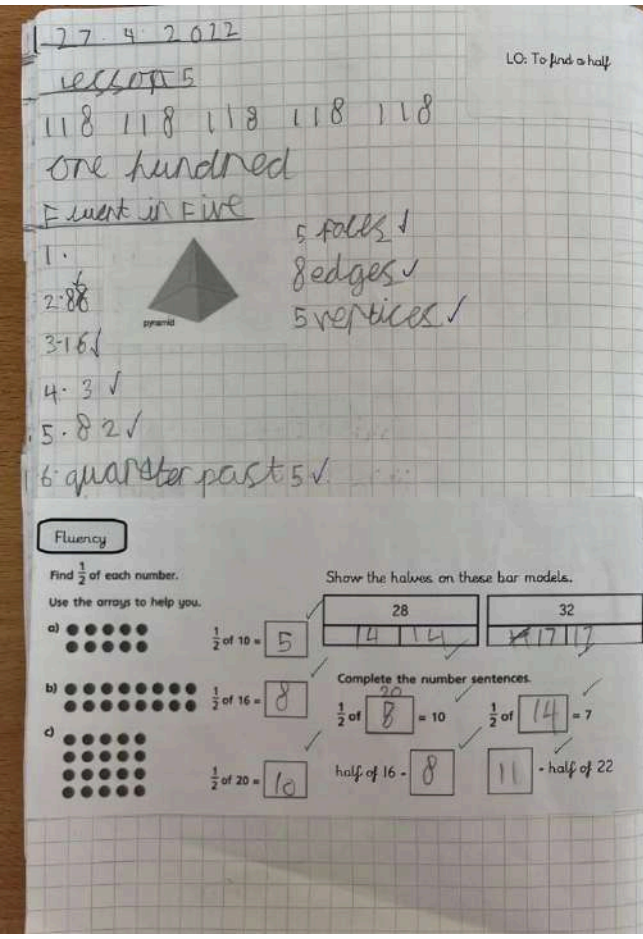 27.4.2022
LO: To find a half
Lesson 5
118 118 118 118 118
one hundred
Fluent in Five
1.
pyramid
5 faces ✓
8 edges ✓
5 vertices ✓
2.
3.16 ✓
4.3 ✓
5.82 ✓
6. quarter past 5 ✓
Fluency
Find 1/2 of each number.
Use the arrays to help you.
a) 1/2 of 10 = 5 ✓
b) 1/2 of 16 = 8 ✓
c) 1/2 of 20 = 10 ✓
Show the halves on these bar models.
28
14 14 ✓
32
17 17
Complete the number sentences.
20
1/2 of 8 = 10 ✓
1/2 of 14 = 7 ✓
half of 16 = 8 ✓
11 = half of 22 ✓